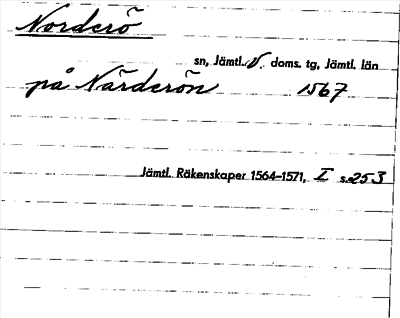 Norderö
sn, Jämtl. V. doms. tg, Jämtl. län
på Närderön 1567
Jämtl. Räkenskaper 1564–1571, I s. 253